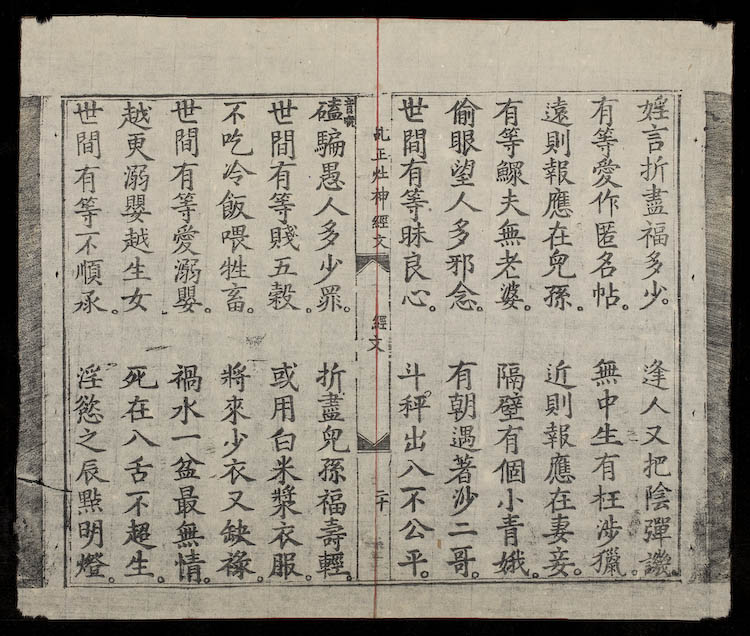 婬言折盡福多少。逢人又把陰彈譏。
有等愛作匿名帖。無中生有枉涉獵。
遠則報應在兒孫。近則報應在妻妾。
有等鰥夫無老婆。隔壁有個小青娥。
偷眼望人多邪念。有朝遇著沙二哥。
世間有等昧良心。斗秤出入不公平。
正灶神經文
經文
二十
磕騙愚人多少罪。折盡兒孫福壽輕。
世間有等賤五穀。或用白米漿衣服。
不吃冷飯喂牲畜。將來少衣又缺祿。
世間有等愛溺嬰。禍水一盆最無情。
越更溺嬰越生女。死在八舌不超生。
世間有等不順承。淫慾之辰點明燈。